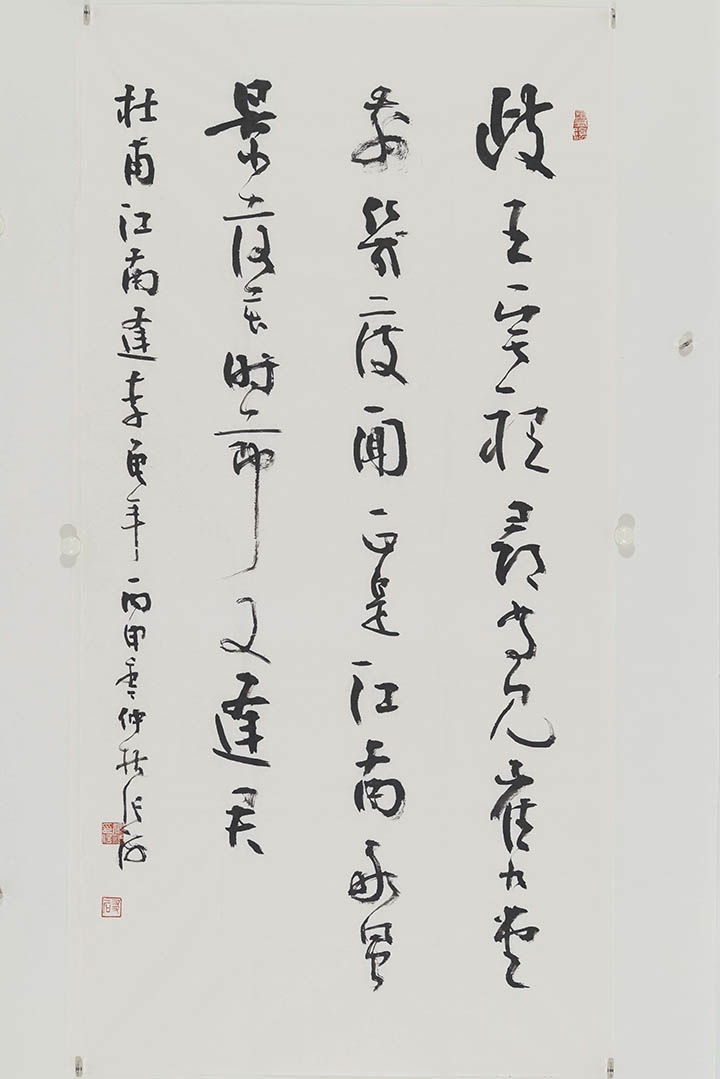 歧王宅裡尋常見崔九堂
前幾度聞正是江南好風
景落花時節又逢君
杜甫江南逢李龜年丙申